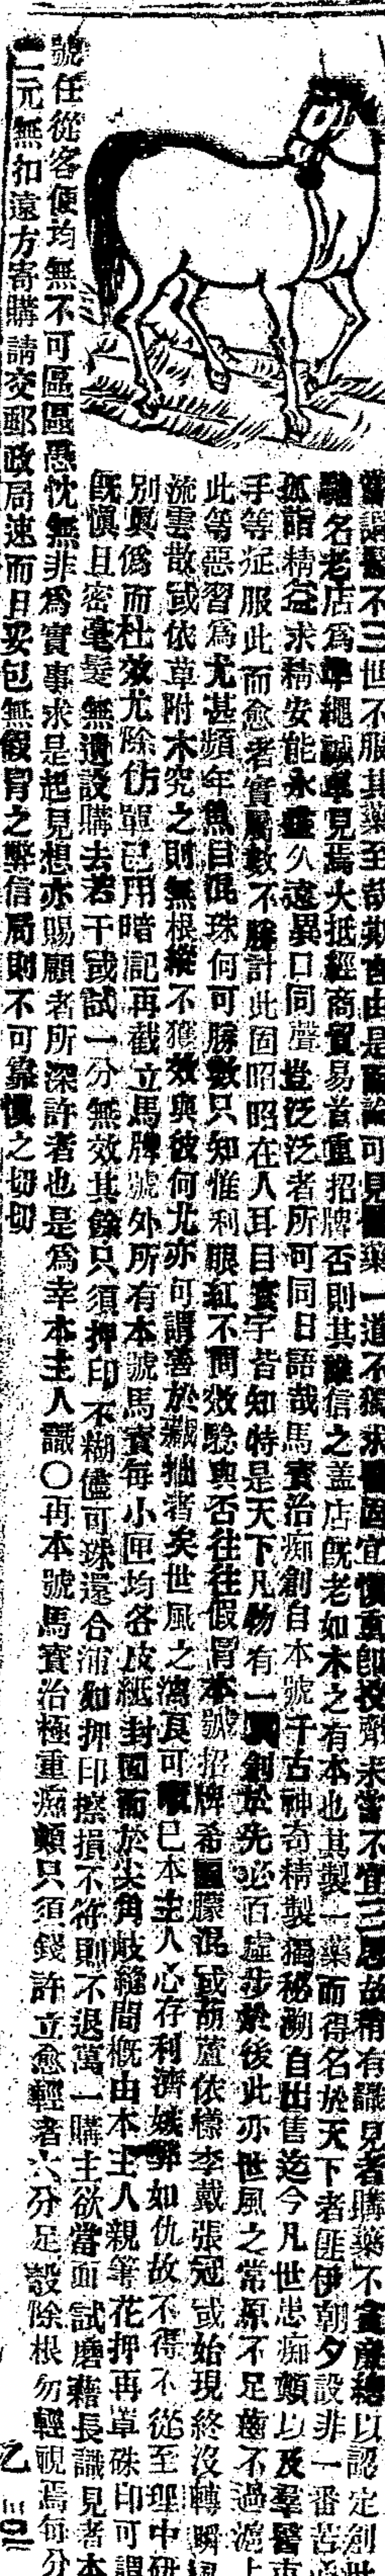 嘗謂醫不三世不服其藥至哉斯言由是而論可見醫藥一道不獨求醫固宜慎重即投劑未嘗不宜三思故稍有識見者購藥不以認定創
馳名老店為準繩誠卓見焉大抵經商貿易首重招牌否則其誰信之蓋店既老如木之有本也其製一藥而得名於天下者匪伊朝夕設非一番苦
孤詣精益求精安能永垂久遠異口同聲豈泛泛者所可同日語哉馬寶治痴創自本號千古神奇精製獨秘溯自出售迄今凡世患痴顛以及羣醫束
手等症服此而愈者實屬數不勝計此固昭昭在人耳目寰宇皆知特是天下凡物有一真創於先必百虛步於後此亦世風之常原不足齒不過滬上
此等惡習為尤甚頻年魚目混珠何可勝數只知惟利眼紅不問效驗與否往往假冒本號招牌希圖朦混或葫蘆依樣李戴張冠或始現終沒轉瞬
流雲散或依草附木究之則無根蒂不獲效與彼何尤亦可謂善於藏拙者矣世風之澆良可嘅已本主人心存利濟嫉弊如仇故不得不從至理中研
別真偽而杜效尤除仿單已用暗記再截立馬牌號外所有本號馬寶每小匣均各皮紙封固而於尖角敲縫間概由本主人親筆花押再罩硃印可謂
既慎且密毫髮無遺設購去若干或試一分無效其餘只須押印不糊儘可珠還合浦如押印擦損不符則不退萬一購主欲當面試磨藉長識見者本
號任從客便均無不可區區愚忱無非為實事求是起見想亦賜顧者所深許者也是為幸本主人識○再本號馬寶治極重痴顛只須錢許立愈輕者六分足彀除根勿輕視焉每分
二元無扣遠方寄購請交郵政局速而且妥包無假冒之弊信局則不可靠慎之切切